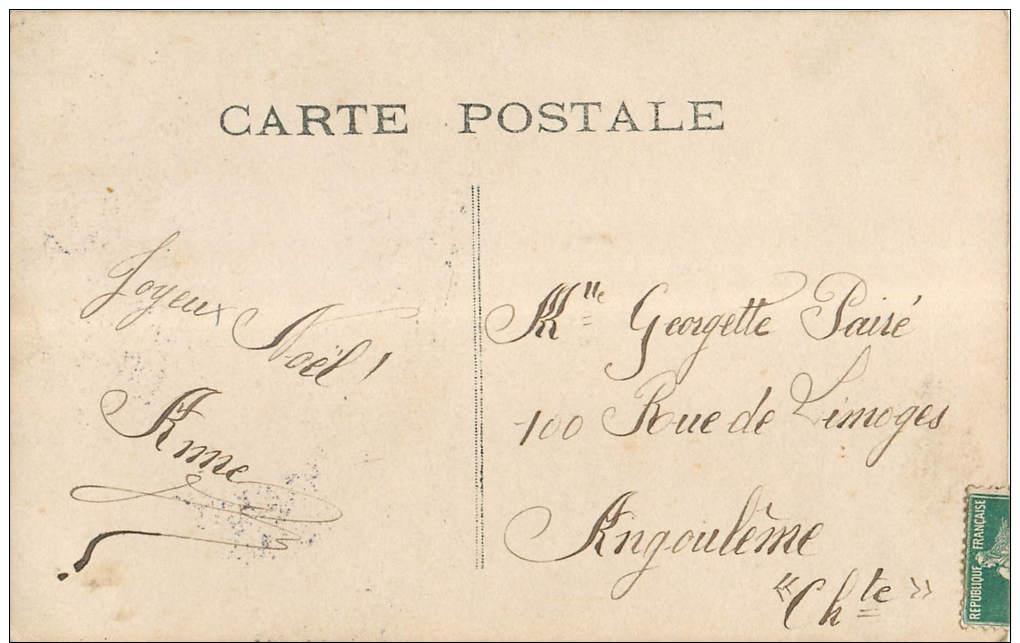 CARTE POSTALE
Joyeux Noël !
Anne
Mlle Georgette Pairé
100 Rue de Limoges
Angoulême
"Chte"
REPUBLIQUE FRANÇAISE